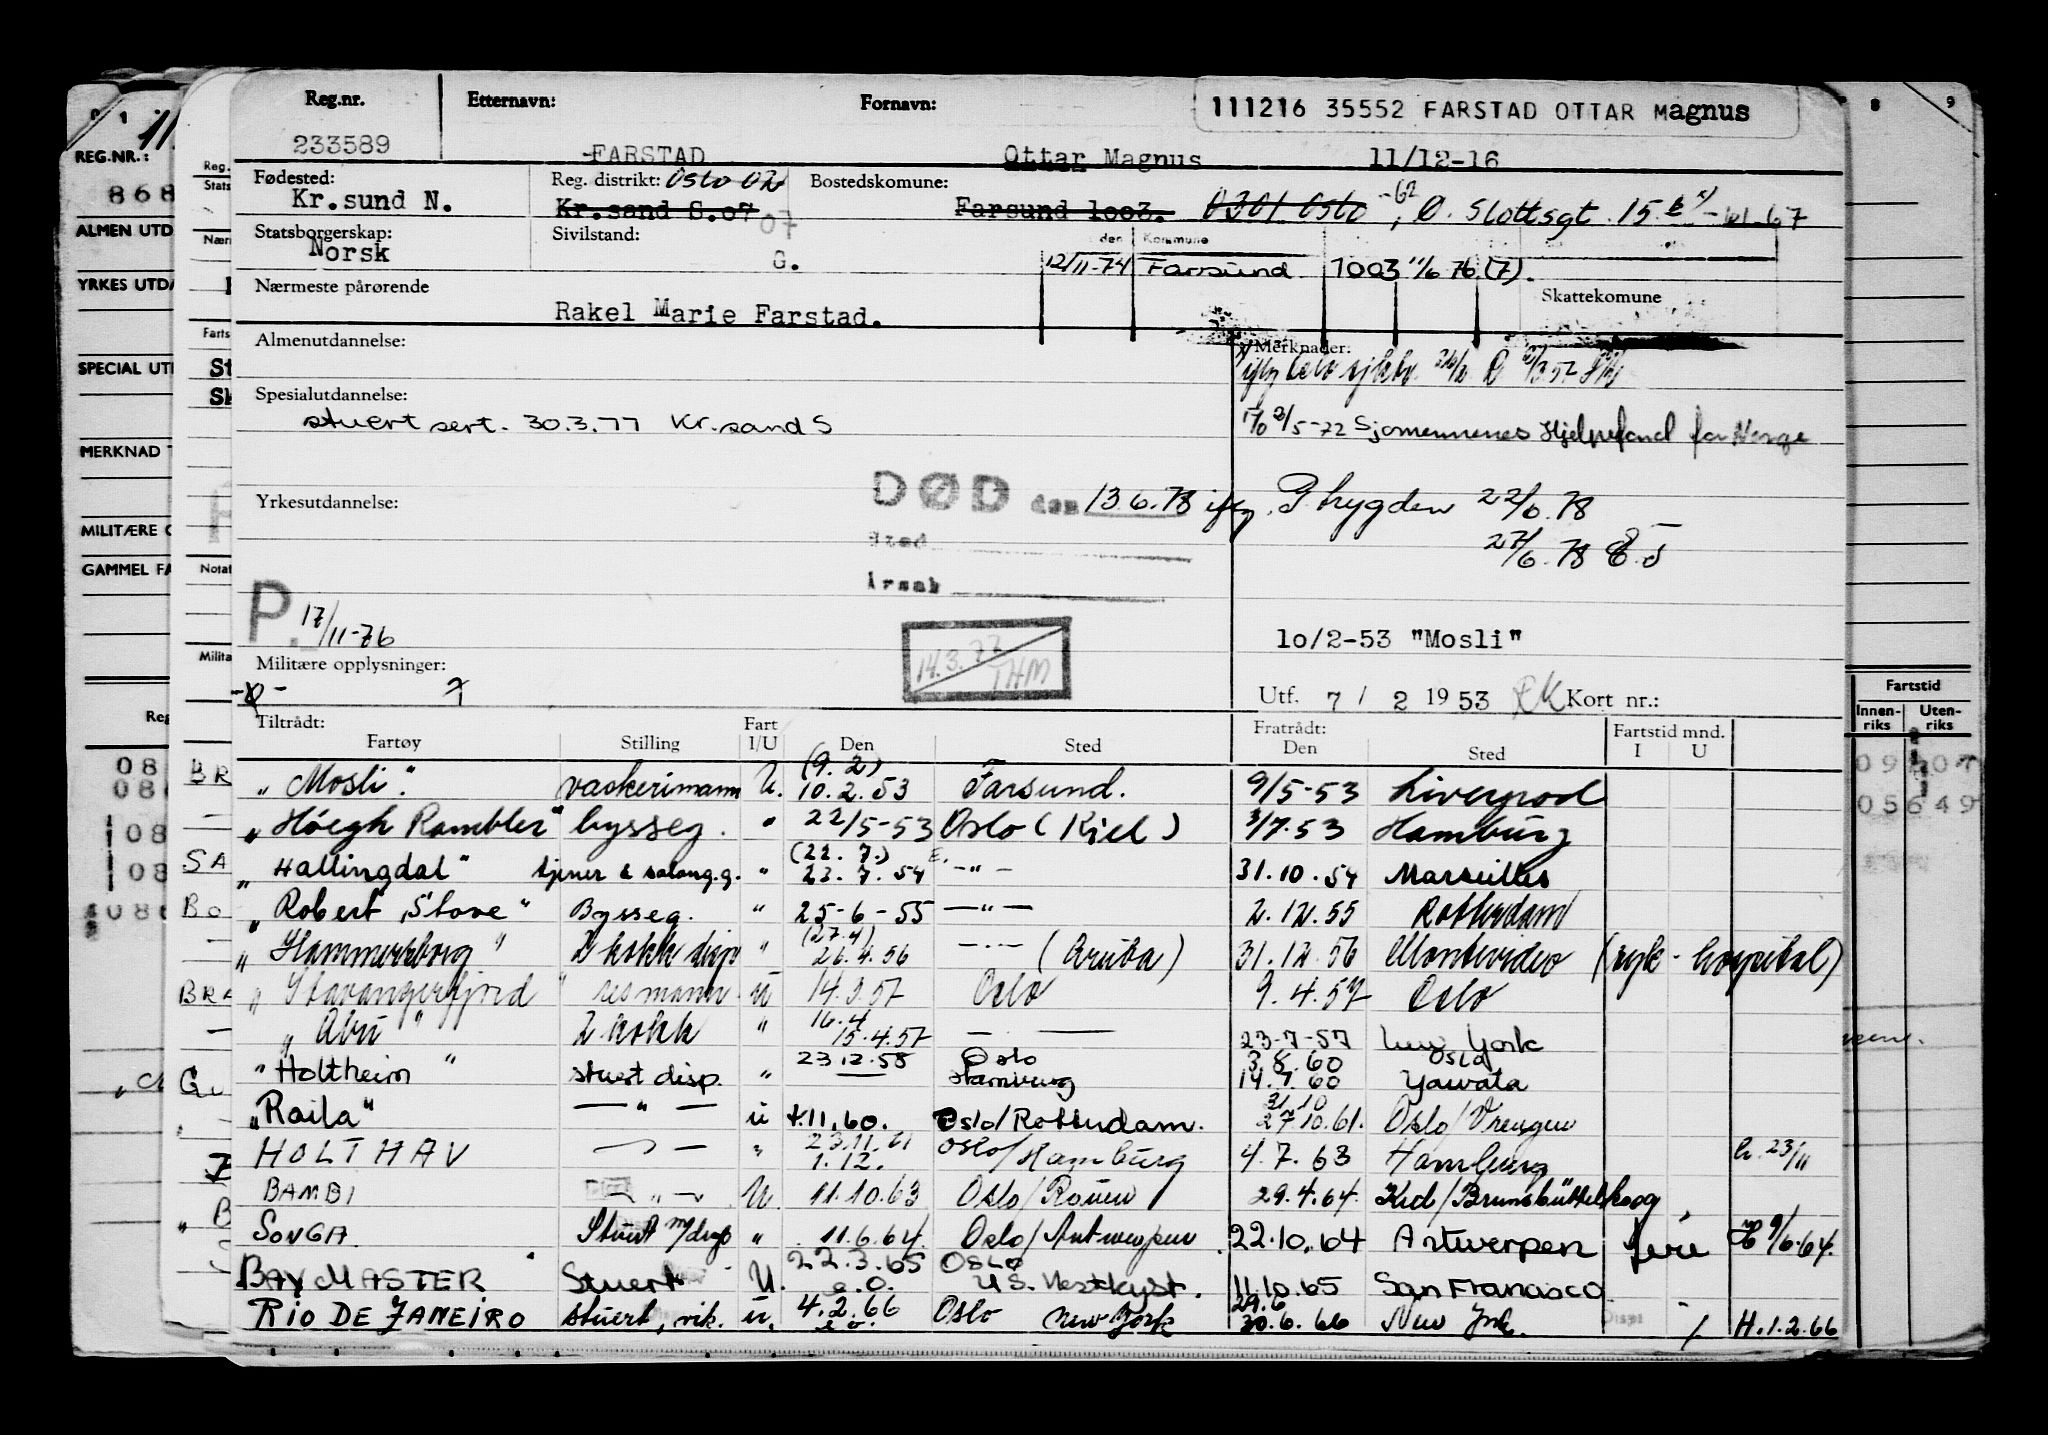 Reg.nr. Etternavn: Fornavn: 111216 35552 FARSTAD OTTAR Magnus
233589 FARSTAD Ottar Magnus 11/12-16
Fødested: Reg. distrikt: Oslo 02 Bostedskomune:
Kr.sund N. Kr.sand S.07 07 Farsund 1003. 0301 Oslo -62, Ø. Slottsgt. 15.
Statsborgerskap: Sivilstand: den Kommune
Norsk G. 12/11-74 Farsund 1003 11/6 76 (7).
Nærmeste pårørende Skattekomune
Rakel Marie Farstad.
Almenutdannelse: Merknader:
Spesialutdannelse:
stuert sert. 30.3.77 Kr.sand S
2/5-72 Sjømennenes Hjelpefond for Norge
DØD den 13.6.78 iflg. Trygden 22/6.78
Yrkesutdannelse:
Sted 27/6.78
Årsak
P. 17/11-76
14.3.77 THM
10/2-53 "Mosli"
Militære opplysninger:
Utf. 7 / 2 1953 Kort nr.:
Tiltrådt: Fart Fratrådt: Fartstid mnd.
Fartøy Stilling I/U Den Sted Den Sted I U
(9.2)
"Mosli". vaskerimann U. 10.2.53 Farsund. 9/5-53 Liverpool
"Höegh Rambler" bysseg. " 22/5-53 Oslo (Kiel) 3/7.53 Hamburg
(22.7.)
"Hallingdal" tjener & salong.g. " 23.7.54 -"- 31.10.54 Marseilles
"Robert Stove" Bysseg. " 25-6-55 -"- 2.12.55 Rotterdam
(27.4)
"Hammersborg" 2 kokk disp " 26.4.56 -"- (Aruba) 31.12.56 Montevideo (syk-hospital)
"Stavangerfjord" resmann u 14.3.57 Oslo 9.4.57 Oslo
16.4
"Abu" 2 kokk " 15.4.57 - — 23-7-57 New York
23.12.58 Oslo 3.8.60 Oslo
"Holtheim" stuert disp. " Hamburg 14.7.60 Yawata
31.10
"Raila" —"— u 4.11.60. Oslo/Rotterdam. 27.10.61. Oslo/Vrengen
23.11.61
HOLTHAV " 1.12. Oslo/Hamburg 4.7.63 Hamburg h. 23/11
BAMBI —"— U. 11.10.63 Oslo/Rouen 29.4.64. Kiel/Brunsbüttelkoog
SONGA Stuert m/disp " 11.6.64. Oslo/Antwerpen 22.10.64 Antwerpen ferie 9/6.64.
22.3.65 Oslo
BAY MASTER Stuert U. e.o. U.S. Vestkyst. 11.10.65 San Francisco
29.6
RIO DE JANEIRO stuert, vik. u. 4.2.66 Oslo New York 30.6.66 New York. H.1.2.66
e.o.
REG.NR.:
868
ALMEN UTD
YRKES UTDA
SPECIAL UT
MERKNAD
MILITÆRE O
GAMMEL FA
Reg.
Stats
Nær
Farts
Notat
Milita
Fartstid
Innen-riks Uten-riks
05649